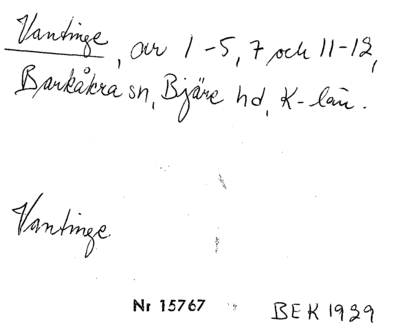 Vantinge, avr 1-5, 7 och 11-12,
Barkåkra sn, Bjäre hd, K-län.
Vantinge
Nr 15767
BEK 1929